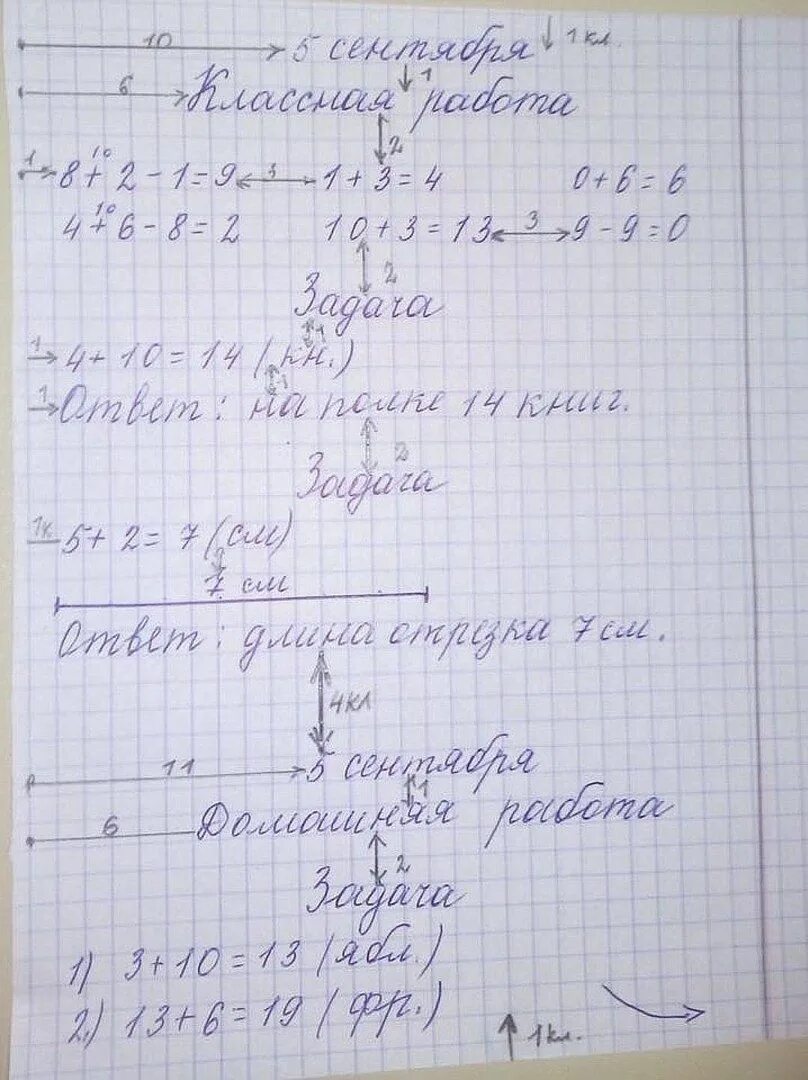 10 5 сентября 1 кл.
6 Классная 1 работа
2
1 10 8 + 2 - 1 = 9 3 1 + 3 = 4 0 + 6 = 6
10 4 + 6 - 8 = 2 10 + 3 = 13 3 9 - 9 = 0
2
Задача
1
1 4 + 10 = 14 (кн.)
1
1 Ответ: на полке 14 книг.
2
Задача
1к 5 + 2 = 7 (см)
7 см
Ответ: длина отрезка 7 см.
4кл
11 5 сентября
1
6 Домашняя работа
2
Задача
1) 3 + 10 = 13 (ябл.)
2.) 13 + 6 = 19 (фр.)
1кл.